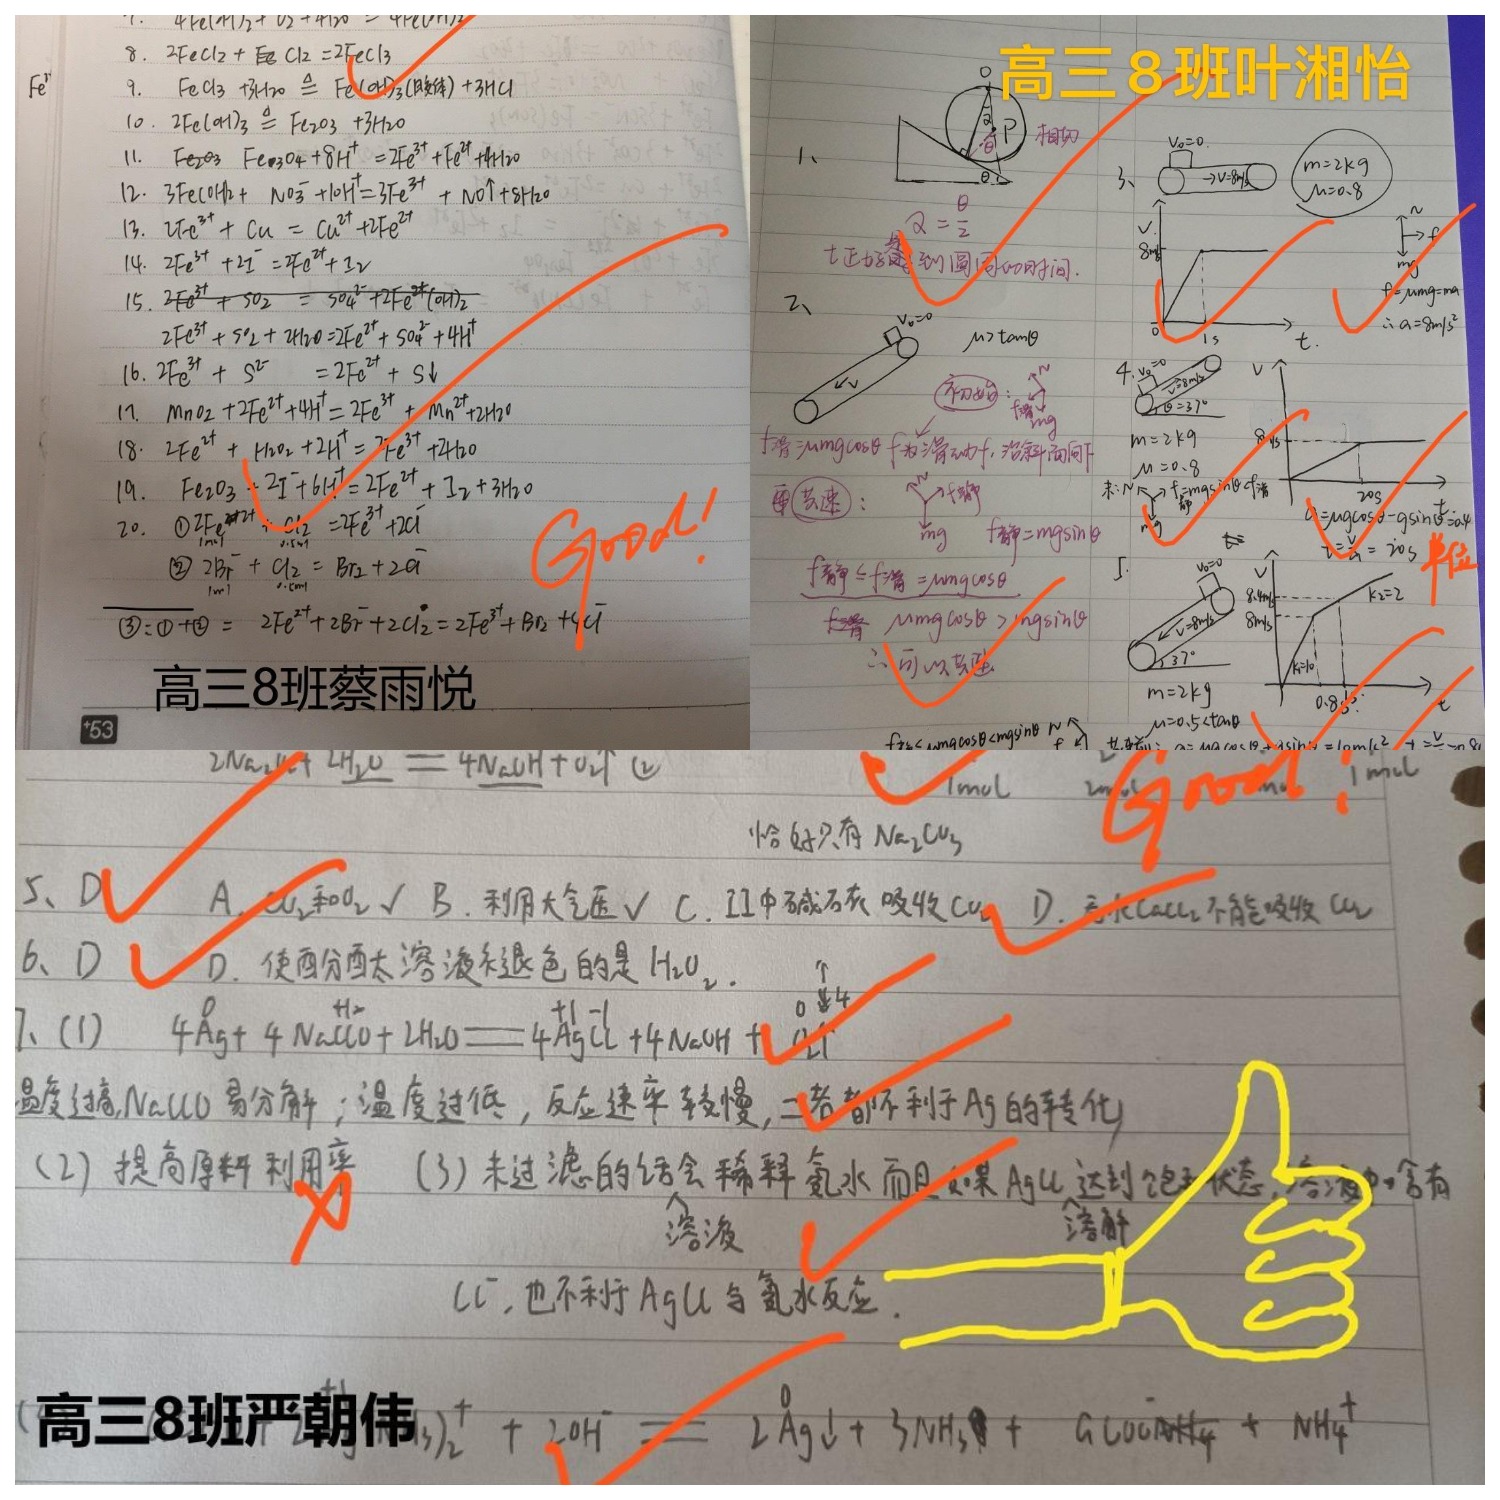 7. 4Fe(OH)2 + O2 + 2H2O = 4Fe(OH)3
8. 2FeCl2 + Cl2 = 2FeCl3
Fe3+
9. FeCl3 + 3H2O ≜ Fe(OH)3(胶体) + 3HCl
10. 2Fe(OH)3 ≜ Fe2O3 + 3H2O
11. Fe2O3 Fe3O4 + 8H+ = 2Fe3+ + Fe2+ + 4H2O
12. 3Fe(OH)2 + NO3- + 10H+ = 3Fe3+ + NO↑ + 8H2O
13. 2Fe3+ + Cu = Cu2+ + 2Fe2+
14. 2Fe3+ + 2I- = 2Fe2+ + I2
15. 2Fe3+ + SO2 = SO42- + 2Fe2+ (OH)2
2Fe3+ + SO2 + 2H2O = 2Fe2+ + SO42- + 4H+
16. 2Fe3+ + S2- = 2Fe2+ + S↓
17. MnO2 + 2Fe2+ + 4H+ = 2Fe3+ + Mn2+ + 2H2O
18. 2Fe2+ + H2O2 + 2H+ = 2Fe3+ + 2H2O
19. Fe2O3 + 2I- + 6H+ = 2Fe2+ + I2 + 3H2O
20. ① 2Fe2+ + Cl2 = 2Fe3+ + 2Cl-
1mol 0.5mol
② 2Br- + Cl2 = Br2 + 2Cl-
1mol 0.5mol
③=①+② = 2Fe2+ + 2Br- + 2Cl2 = 2Fe3+ + Br2 + 4Cl-
Good!
高三8班蔡雨悦
+53
高三8班叶湘怡
1、
O
P
相切
θ
α = θ/2
t正好是到圆周的时间.
2、
V0=0
μ>tanθ
V
初始: N
f滑
mg
f滑=μmgcosθ f为滑动f,沿斜面向下
共速: N f静
mg f静=mgsinθ
f静≤f滑=μmgcosθ
f滑 μmgcosθ>mgsinθ
∴可以共速
3、
V0=0
V=8m/s
m=2kg
μ=0.8
V
8m/s
0 1s t
N
f
mg
f=μmg=ma
∴a=8m/s2
4. V0=0
V=8m/s
θ=37°
m=2kg
μ=0.8
N f静=mgsinθ<f滑
mg
V
8m/s
20s t
a=μgcosθ-gsinθ=0.4
t=v/a=20s
单位
5.
V0=0
V=8m/s
37°
m=2kg
μ=0.5<tanθ
V
8.4m/s
8m/s
k2=2
k=10
0.8s t
f静≤μmgcosθ<mgsinθ N
f
2Na2O2 + 2H2O = 4NaOH + O2↑ ②
1mol 2mol 1mol
Good!
恰好只有Na2CO3
5、D A. CO2和O2 √ B. 利用大气压 √ C. II中碱石灰吸收CO2 D. 无水CaCl2不能吸收CO2
6、D D. 使酚酞溶液褪色的是H2O2.
7、(1) 4Ag + 4NaClO + 2H2O = 4AgCl + 4NaOH + O2↑
温度过高,NaClO易分解;温度过低,反应速率较慢,二者都不利于Ag的转化
(2) 提高原料利用率 (3) 未过滤的话会稀释氨水而且如果AgCl达到饱和状态,溶液中含有
溶液 溶解
Cl-,也不利于AgCl与氨水反应.
高三8班严朝伟
+ 2OH- = 2Ag↓ + 3NH3 + + NH4+